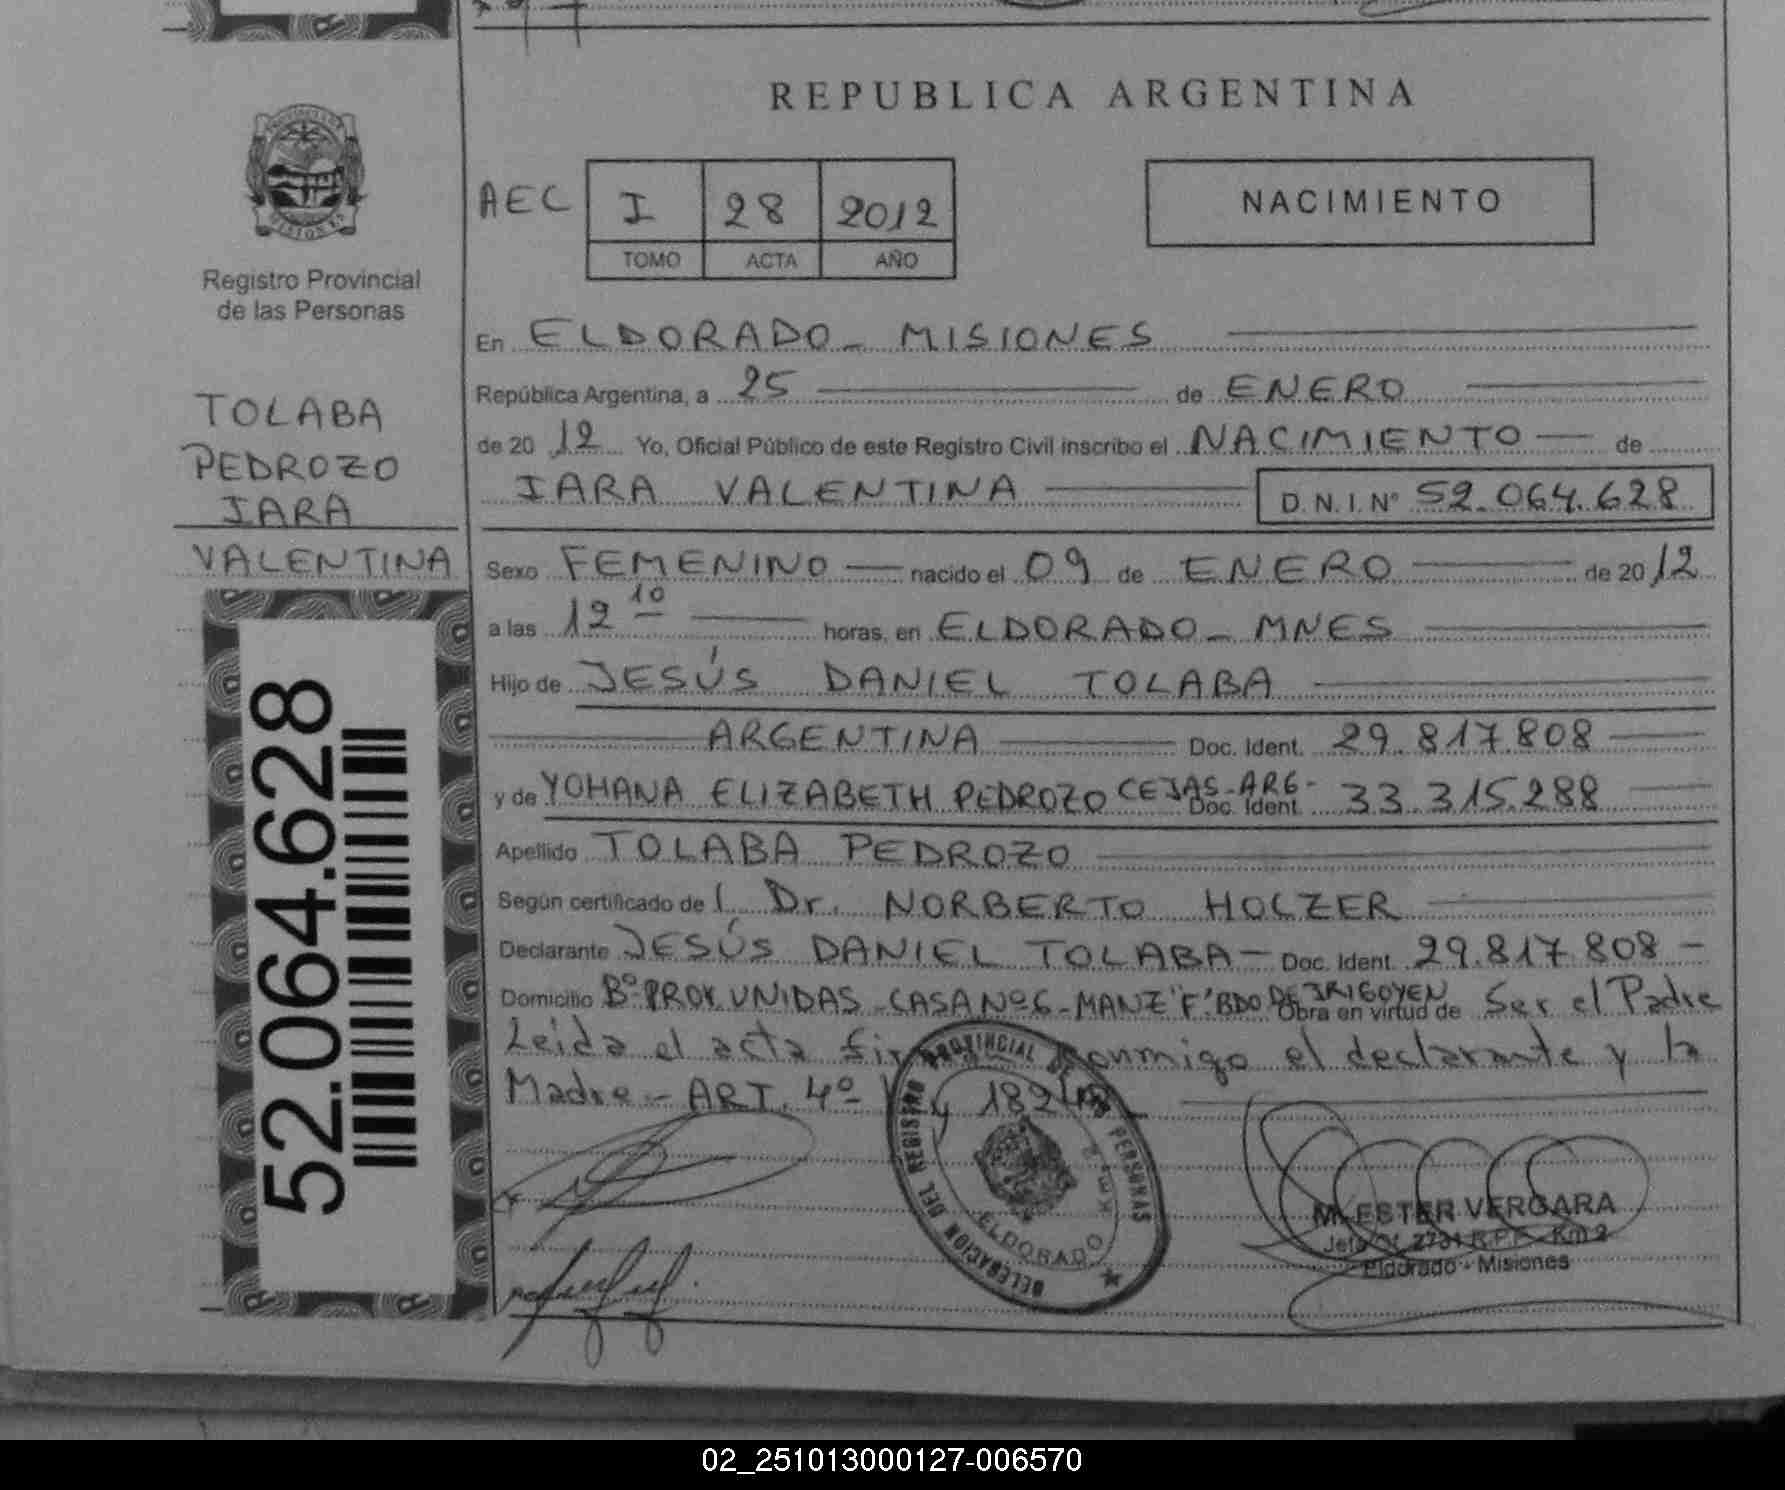 REPUBLICA ARGENTINA
Registro Provincial
de las Personas
TOLABA
PEDROZO
IARA
VALENTINA
52.064.628
AEC
I 28 2012
TOMO ACTA AÑO
NACIMIENTO
En ELDORADO - MISIONES
República Argentina, a 25 de ENERO
de 20 12 Yo, Oficial Público de este Registro Civil inscribo el NACIMIENTO de
IARA VALENTINA D.N.I.Nº 52.064.628
Sexo FEMENINO nacido el 09 de ENERO de 20 12
a las 12 10 horas, en ELDORADO - MNES
Hijo de JESÚS DANIEL TOLABA
ARGENTINA Doc. Ident. 29.817.808
y de YOHANA ELIZABETH PEDROZO CEJAS-ARG- Doc. Ident. 33.315.288
Apellido TOLABA PEDROZO
Según certificado de l Dr. NORBERTO HOLZER
Declarante JESÚS DANIEL TOLABA - Doc. Ident. 29.817.808 -
Domicilio Bº PROV. UNIDAS - CASA Nº 6 - MANZ "F" BDO DE IRIGOYEN Obra en virtud de Ser el Padre
Leida el acta conmigo el declarante y la
Madre - ART. 4º
DELEGACION DEL REGISTRO PROVINCIAL DE LAS PERSONAS
ELDORADO
M. ESTER VERGARA
Eldorado - Misiones
02_251013000127-006570